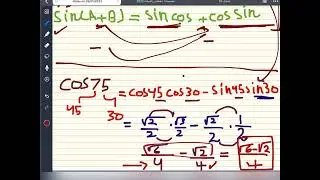 Sin(A+B) = sin cos + cos sin
COS75 = cos45 cos30 - sin45 sin30
45 30
= √2/2 · √3/2 - √2/2 · 1/2
→ √6/4 - √2/4 = √6-√2/4